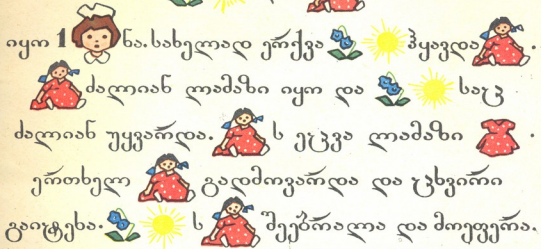 იყო 1 ნა. სახელად ერქვა ჰყავდა .
ძალიან ლამაზი იყო და საც
ძალიან უყვარდა. ს ეცვა ლამაზი .
ერთხელ გადმოვარდა და ცხვირი
გაიტეხა. ს შეებრალა და მოეფერა.